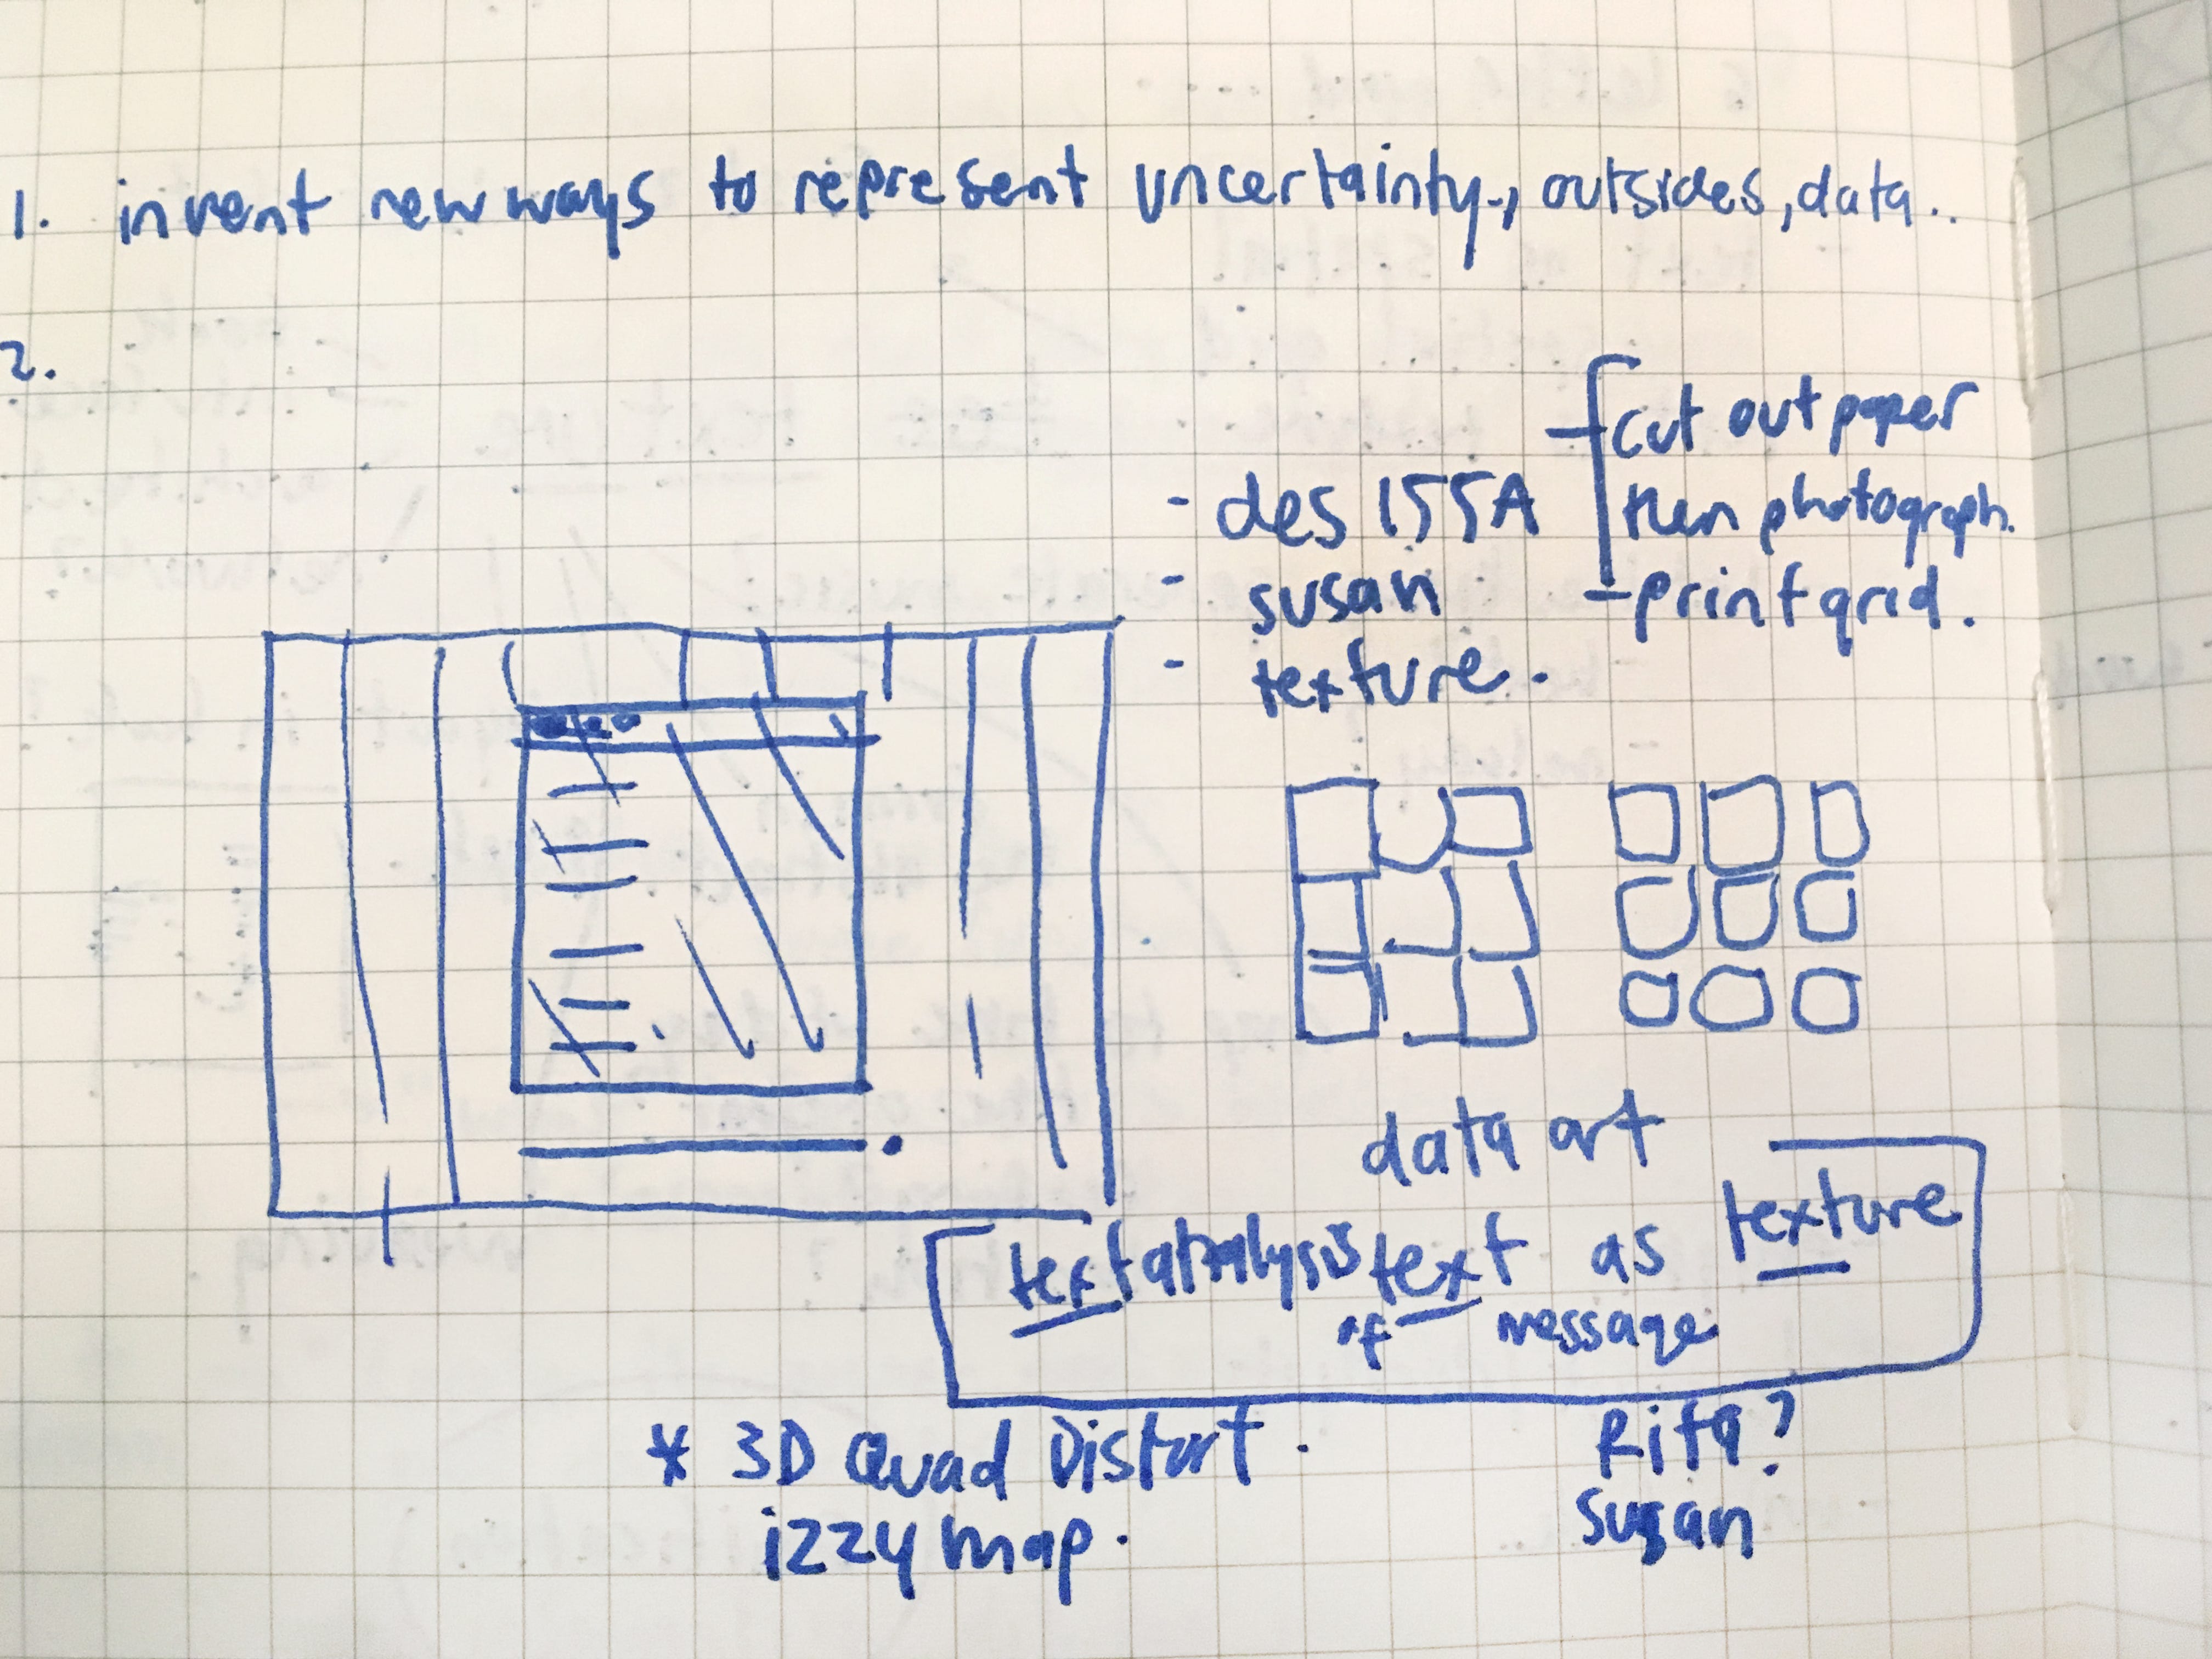 1. invent new ways to represent uncertainty., outsides, data..
2.
- des 155A
- susan
- texture.
cut out paper
then photograph.
- print grid.
data art
text analysis text as texture
of message
* 3D Quad Distort.
izzy map.
Rita?
susan